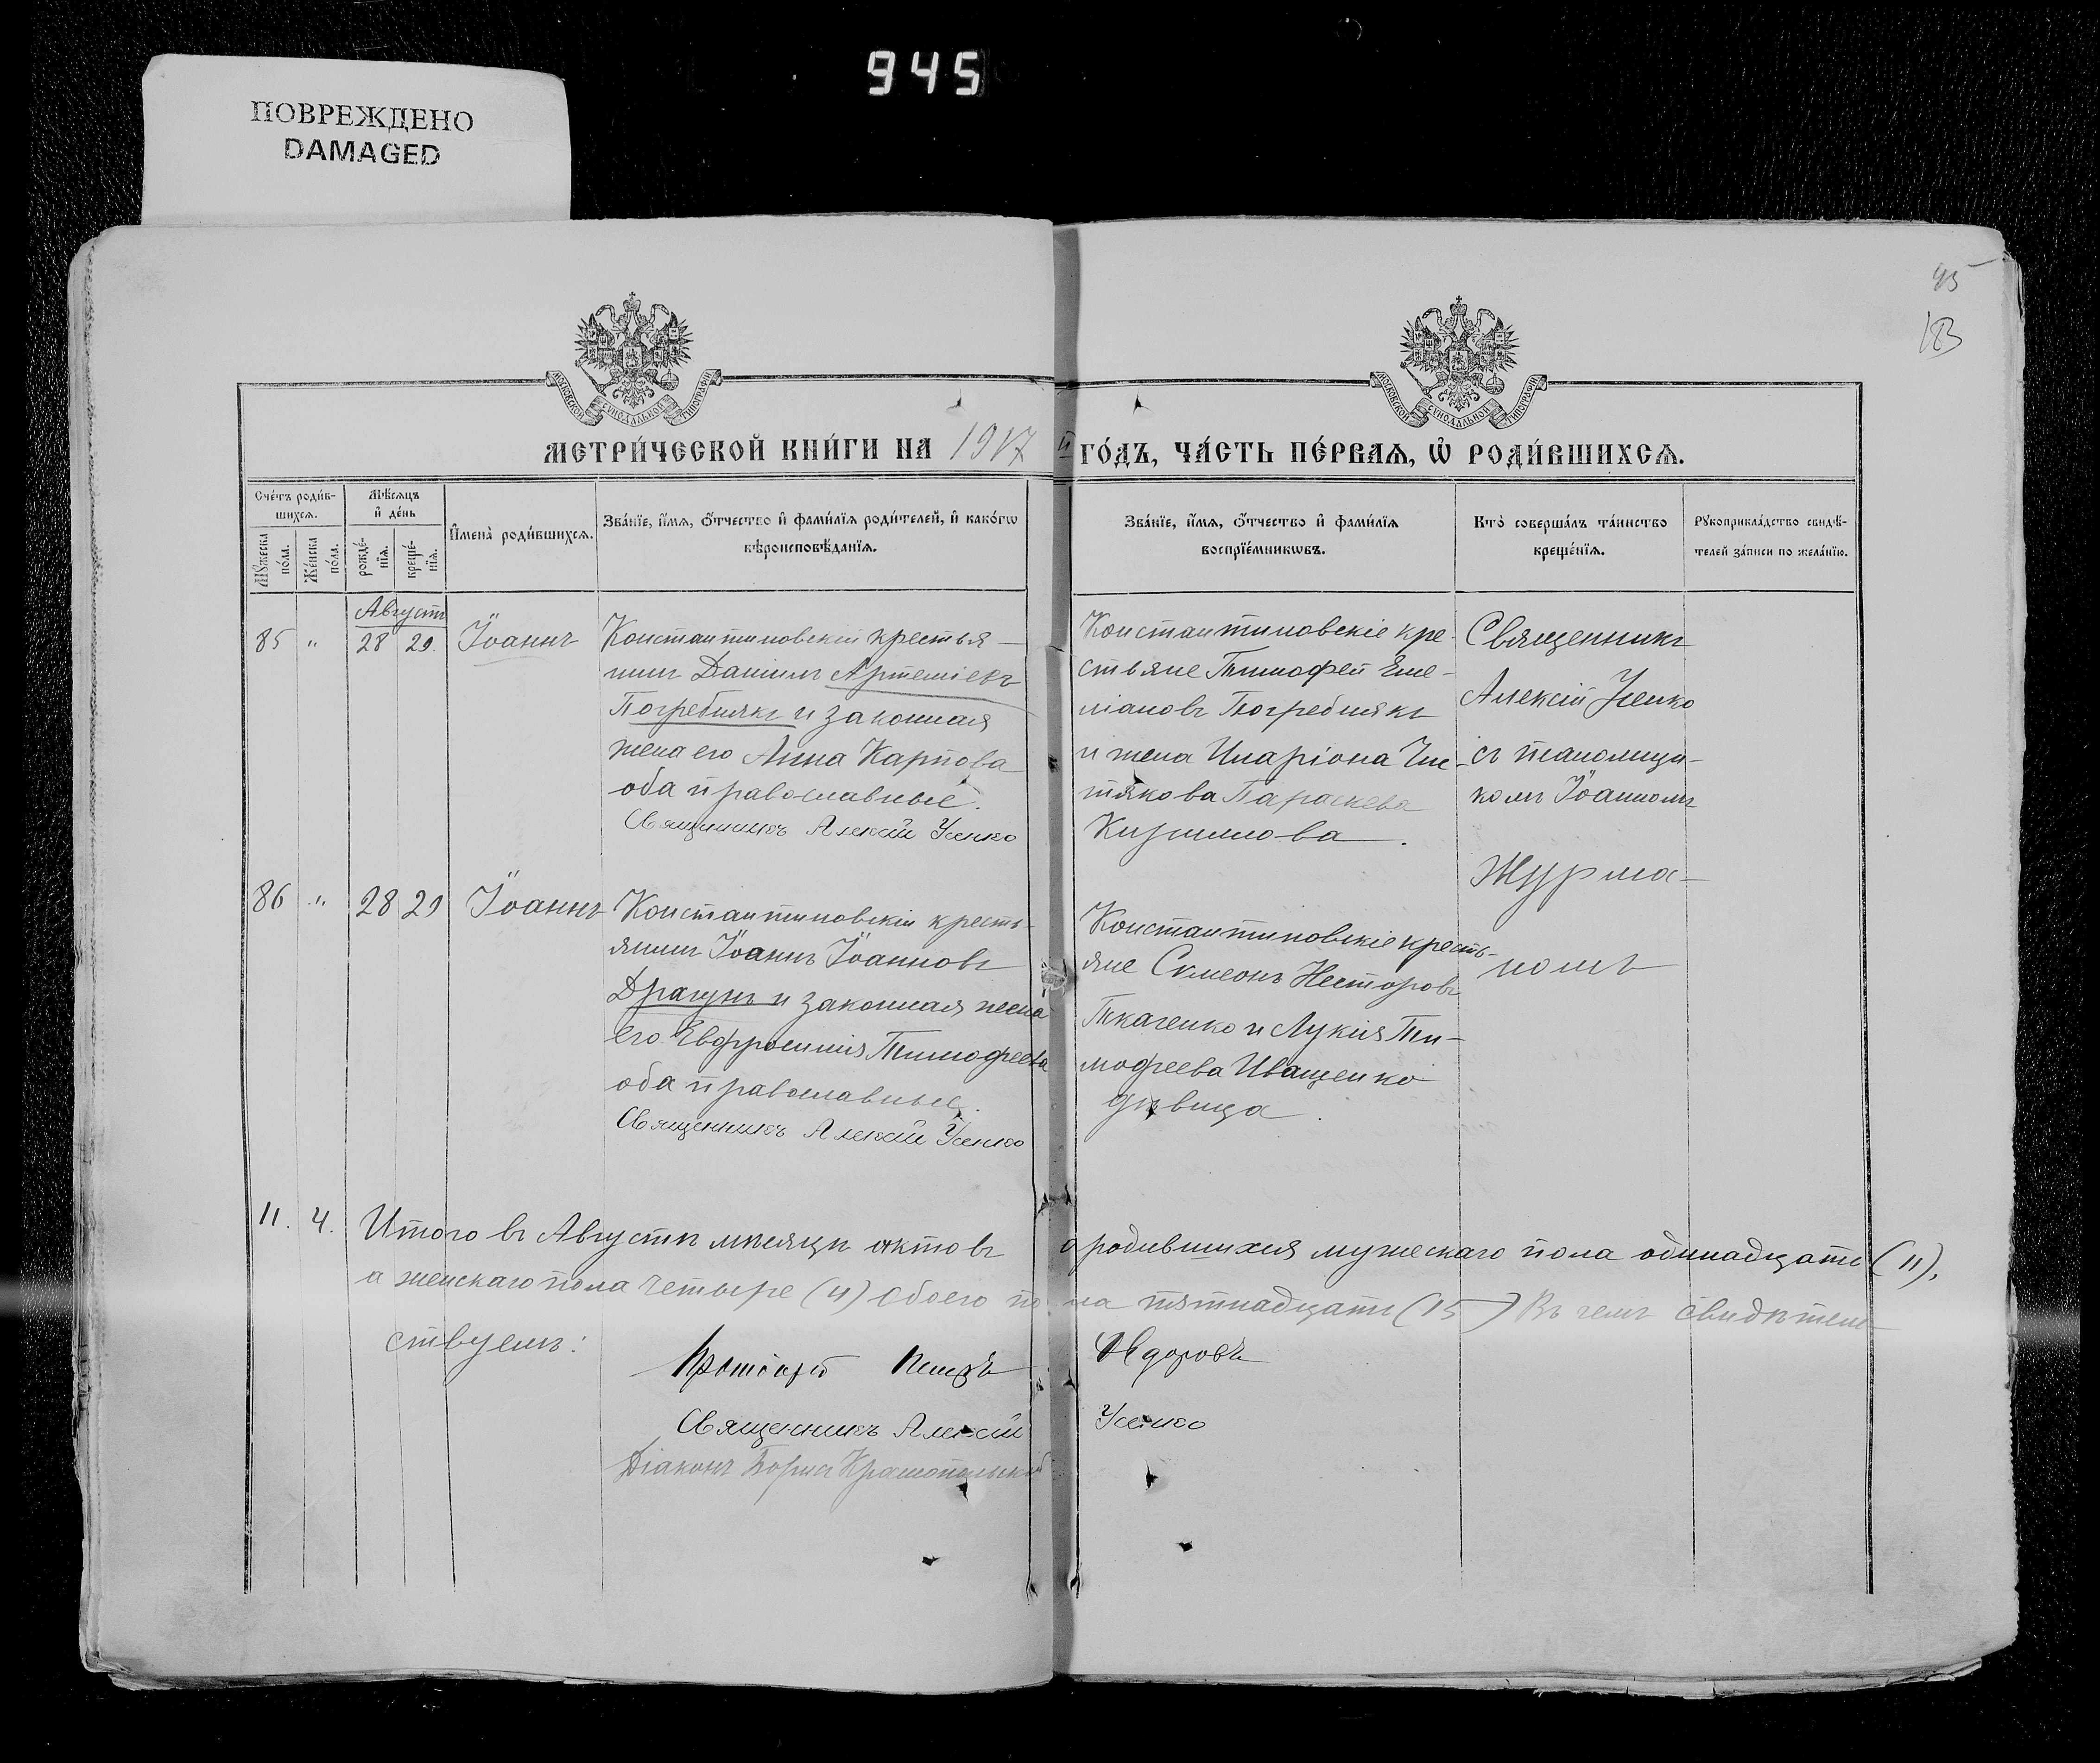 945
ПОВРЕЖДЕНО
DAMAGED
45
183
МОСКОВСКОЙ СѴНОДАЛЬНОЙ ТИПОГРАФІИ
МОСКОВСКОЙ СѴНОДАЛЬНОЙ ТИПОГРАФІИ
МЕТРИ́ЧЕСКОЙ КНИ́ГИ НА 1917 й ГО́ДЪ, ЧА́СТЬ ПЕ́РВАѦ, Ѡ҆ РОДИ́ВШИХСѦ.
Сче́тъ роди́в-
шихсѧ.
Мѣ́сѧцъ
и҆ де́нь
И҆мена̀ роди́вшихсѧ.
Зва́нїе, и҆́мѧ, ѻ҆́тчество и҆ фами́лїѧ роди́телей, и҆ како́гѡ
вѣроисповѣ́данїѧ.
Зва́нїе, и҆́мѧ, ѻ҆́тчество и҆ фами́лїѧ
воспрїе́мникѡвъ.
Кто̀ соверша́лъ та́инство
креще́нїѧ.
Рꙋкоприкла́дство свидѣ́-
телей за́писи по жела́нїю.
Мꙋ́жеска
по́ла.
Же́нска
по́ла.
рожде́-
нїѧ.
креще́-
нїѧ.
Августъ
85 " 28 29. Іоаннъ
Константиновскій крестья-
нинъ Даніилъ Артеміевъ
Погребнякъ и законная
жена его Анна Карпова
оба православные.
Священникъ Алексій Усенко
Константиновскіе кре-
стьяне Тимофей Еме-
ліановъ Погребнякъ
и жена Иларіона Чис-
тякова Параскева
Кириллова.
Священникъ
Алексій Усенко
съ псаломщи-
комъ Іоанномъ
Журма-
номъ
86 " 28 29 Іоаннъ
Константиновскій кресть-
янинъ Іоаннъ Іоанновъ
Драгунъ и законная жена
его Евфросинія Тимофеева
оба православные.
Священникъ Алексій Усенко
Константиновскіе кресть-
яне Сѵмеонъ Несторовъ
Ткаченко и Лукія Ти-
мофеева Иващенко
дѣвица.
11. 4. Итого въ Августѣ мѣсяцѣ актовъ о родившихся мужескаго пола одинадцать (11),
а женскаго пола четыре (4) Обоего пола пятнадцать (15) Въ чемъ свидѣтель
ствуемъ:
Протоіерей Ѳедоровъ
Священникъ Алексій Усенко
Діаконъ Борисъ Краснопольскій